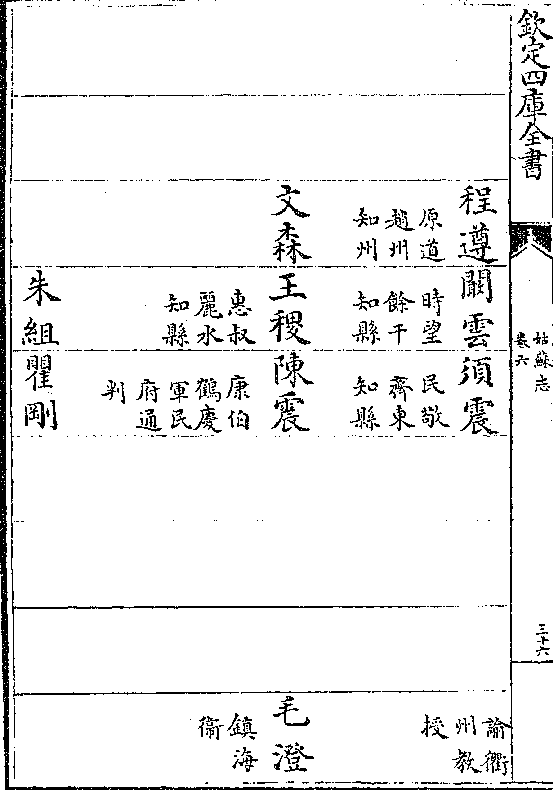 欽定四庫全書
姑蘇志
卷六
三十六
程遵
原道
趙州
知州
闞雲
時望
餘干
知縣
須震
民敬
齊東
知縣
諭衢
州教
授
文森
王稷
惠叔
麗水
知縣
陳震
康伯
鶴慶
軍民
府通
判
毛澄
鎮海
衞
朱組
瞿剛